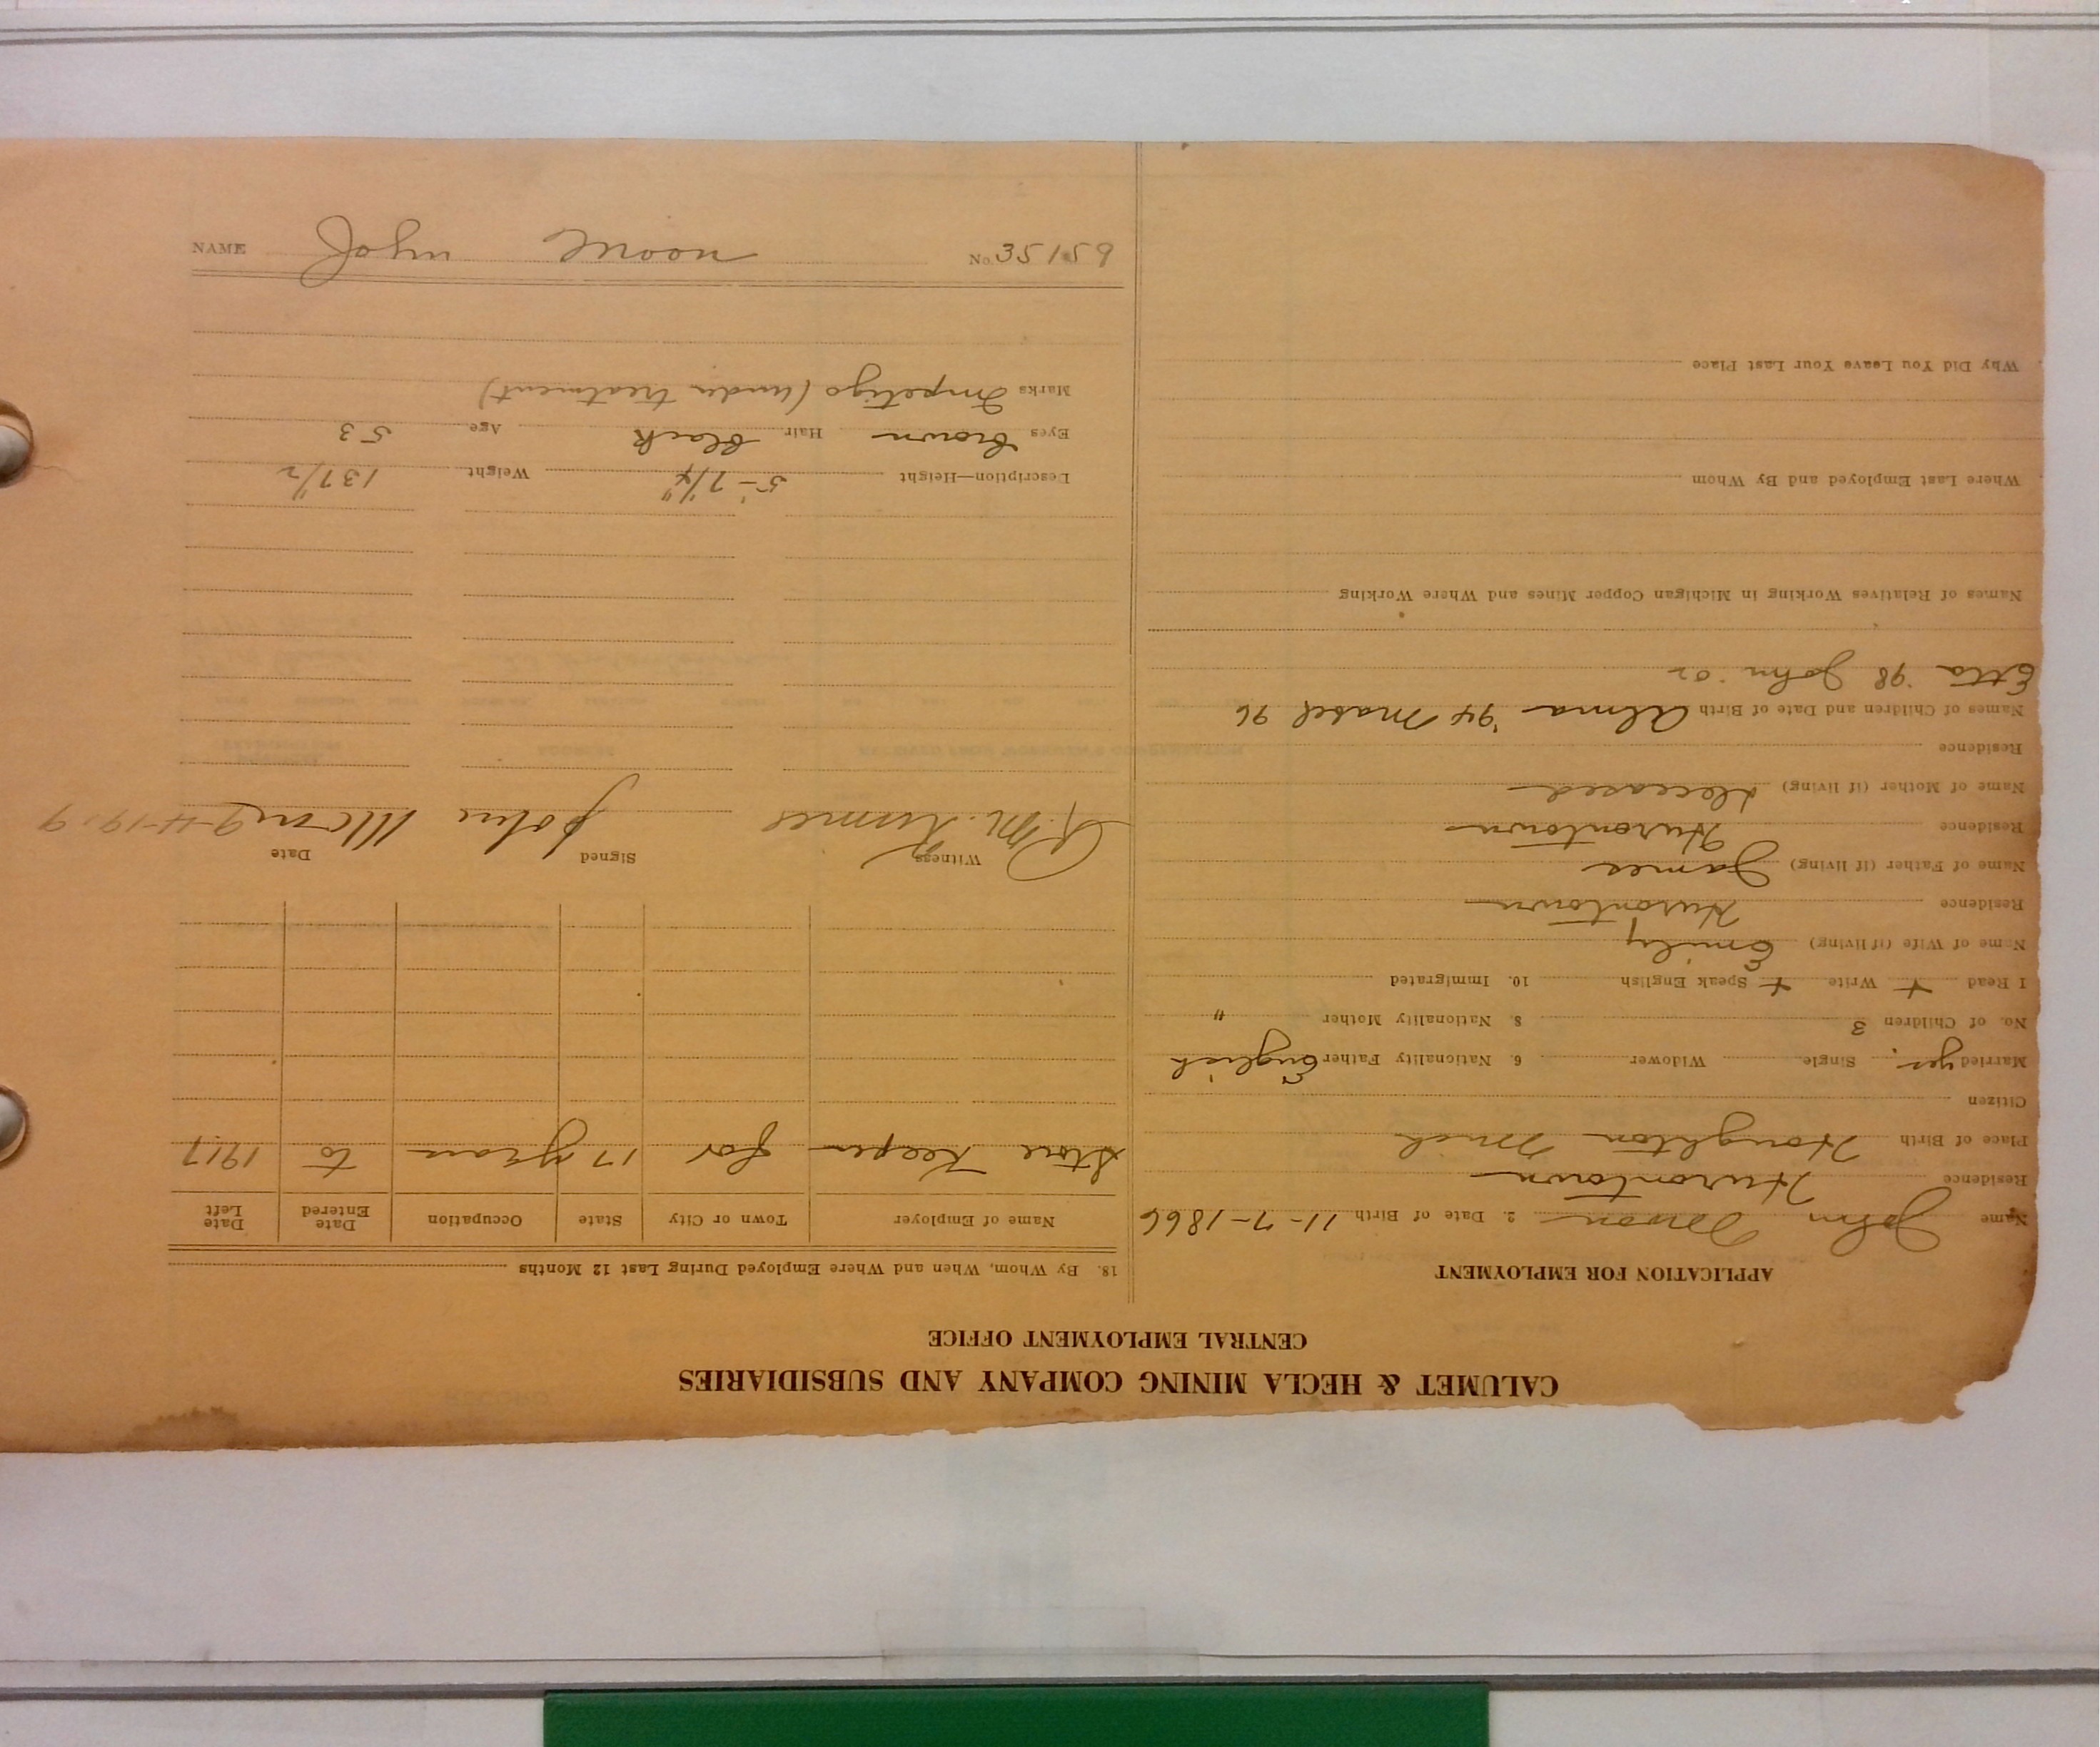 CALUMET & HECLA MINING COMPANY AND SUBSIDIARIES
CENTRAL EMPLOYMENT OFFICE
APPLICATION FOR EMPLOYMENT
Name John Moon 2. Date of Birth 11-7-1866
Residence Hurontown
Place of Birth Houghton Mich
Citizen
Married yes. Single Widower 6. Nationality Father English
No. of Children 3 8. Nationality Mother "
I Read + Write + Speak English 10. Immigrated
Name of Wife (if living) Emily
Residence Hurontown
Name of Father (if living) James
Residence Hurontown
Name of Mother (if living) deceased
Residence
Names of Children and Date of Birth Alma '94 Mabel 96
Etta '98 John '02
Names of Relatives Working in Michigan Copper Mines and Where Working
Where Last Employed and By Whom
Why Did You Leave Your Last Place
18. By Whom, When and Where Employed During Last 12 Months
Name of Employer Town or City State Occupation Date Entered Date Left
Store Keeper for 17 years to 1917
Witness Signed Date
John Moon 9-4-1919
Description—Height 5'-7 1/4" Weight 137 1/2
Eyes brown Hair black Age 53
Marks Impetigo (under treatment)
NAME John Moon No. 35159